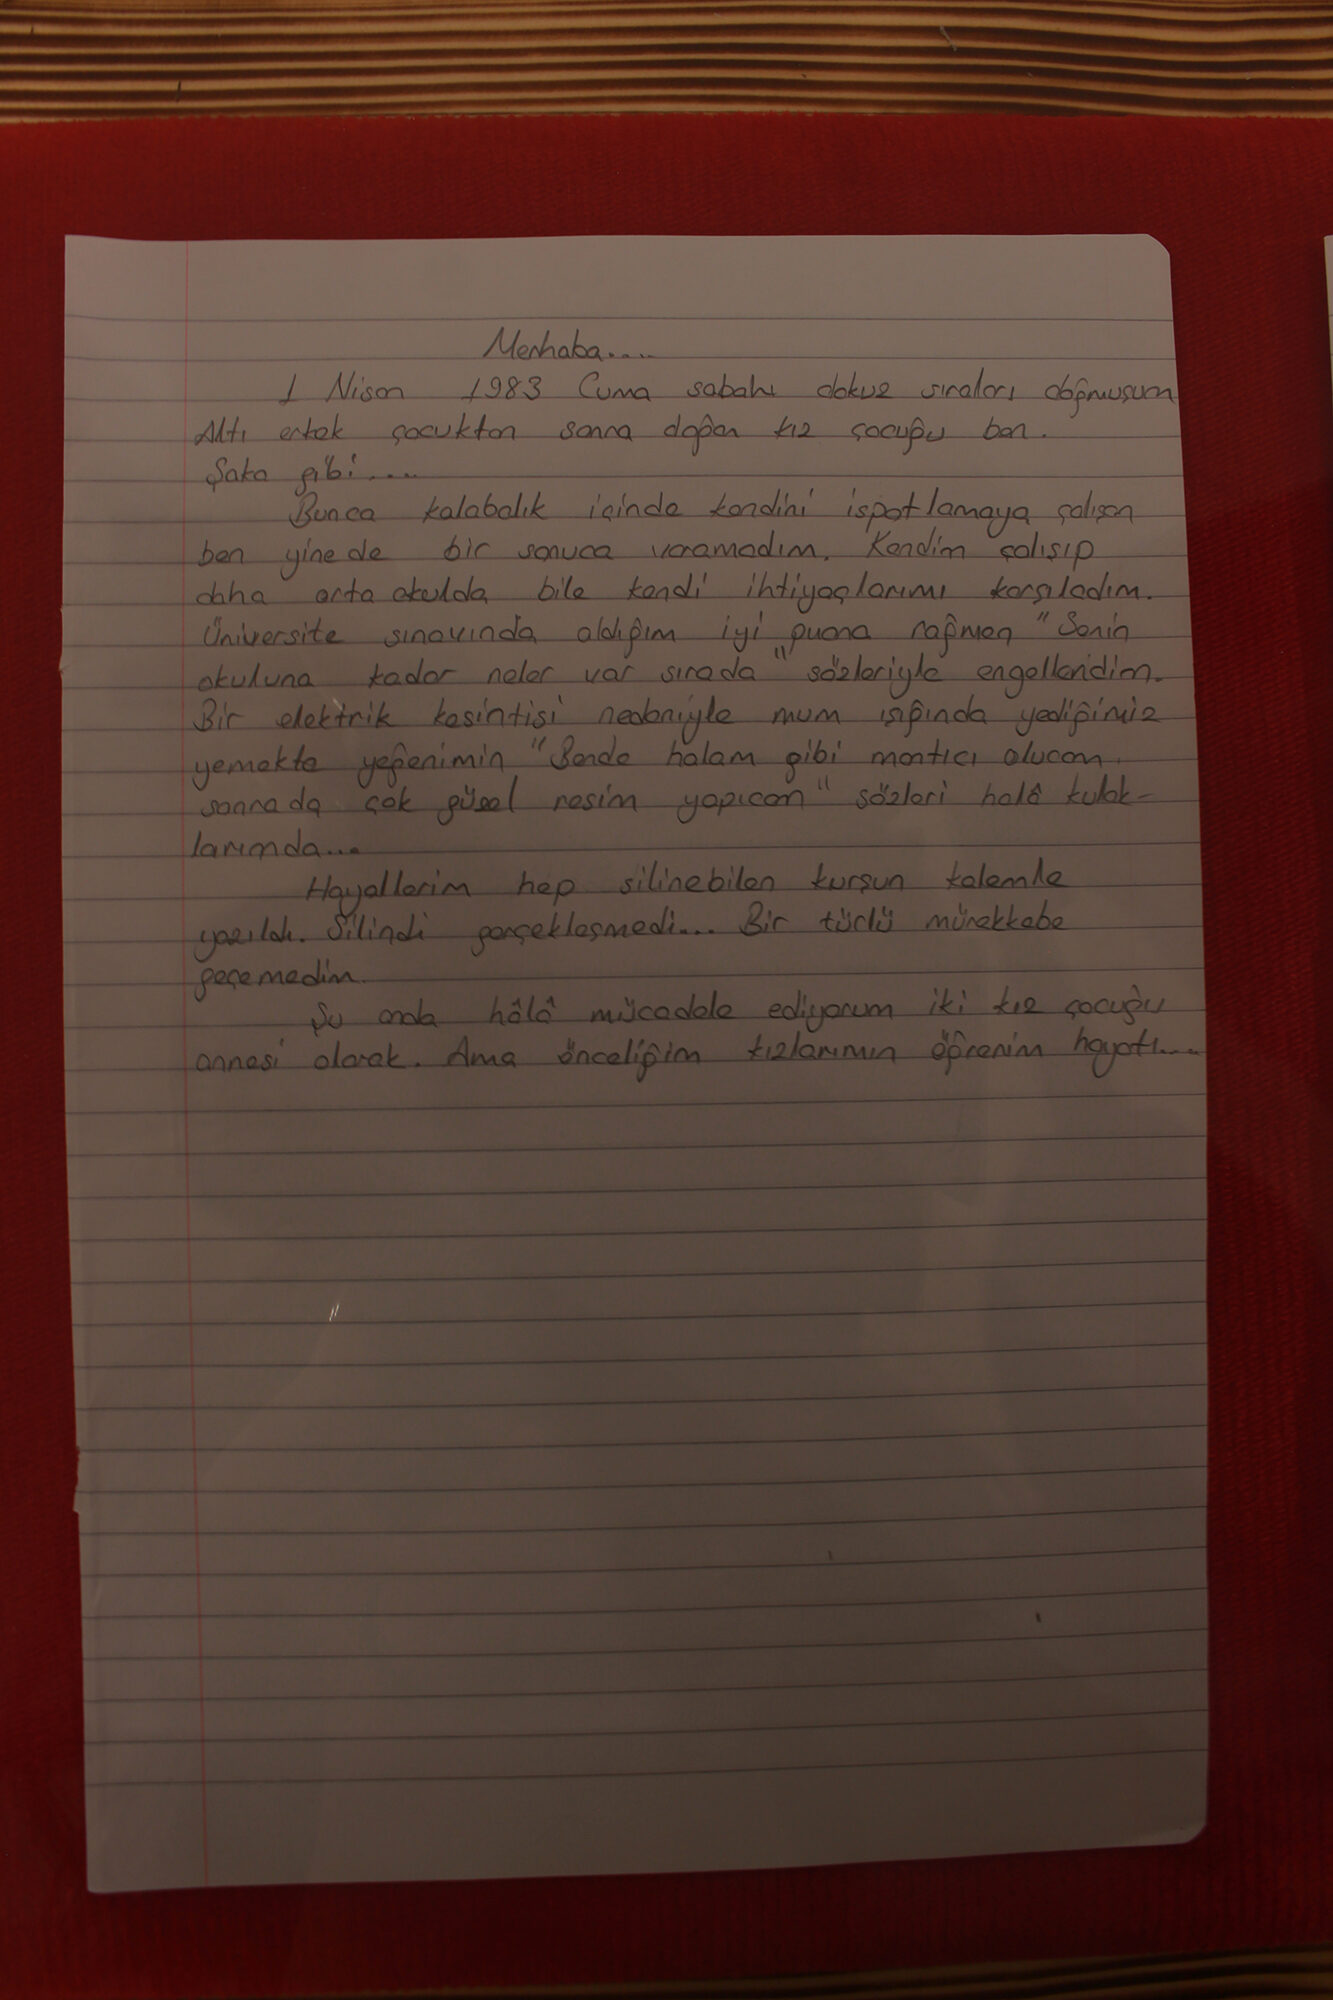 Merhaba....
1 Nisan 1983 Cuma sabahı dokuz sıraları doğmuşum
Altı erkek çocuktan sonra doğan kız çocuğu ben.
Şaka gibi....
Bunca kalabalık içinde kendini ispatlamaya çalışan
ben yinede bir sonuca varamadım. Kendim çalışıp
daha orta okulda bile kendi ihtiyaçlarımı karşıladım.
Üniversite sınavında aldığım iyi puana rağmen "Senin
okuluna kadar neler var sırada" sözleriyle engellendim.
Bir elektrik kesintisi nedeniyle mum ışığında yediğimiz
yemekte yeğenimin "Bende halam gibi mantıcı olucam
sonrada çok güzel resim yapıcam" sözleri halâ kulak-
larımda...
Hayallerim hep silinebilen kurşun kalemle
yazıldı. Silindi gerçekleşmedi... Bir türlü mürekkebe
geçemedim.
Şu anda hâlâ mücadele ediyorum iki kız çocuğu
annesi olarak. Ama önceliğim kızlarımın öğrenim hayatı....